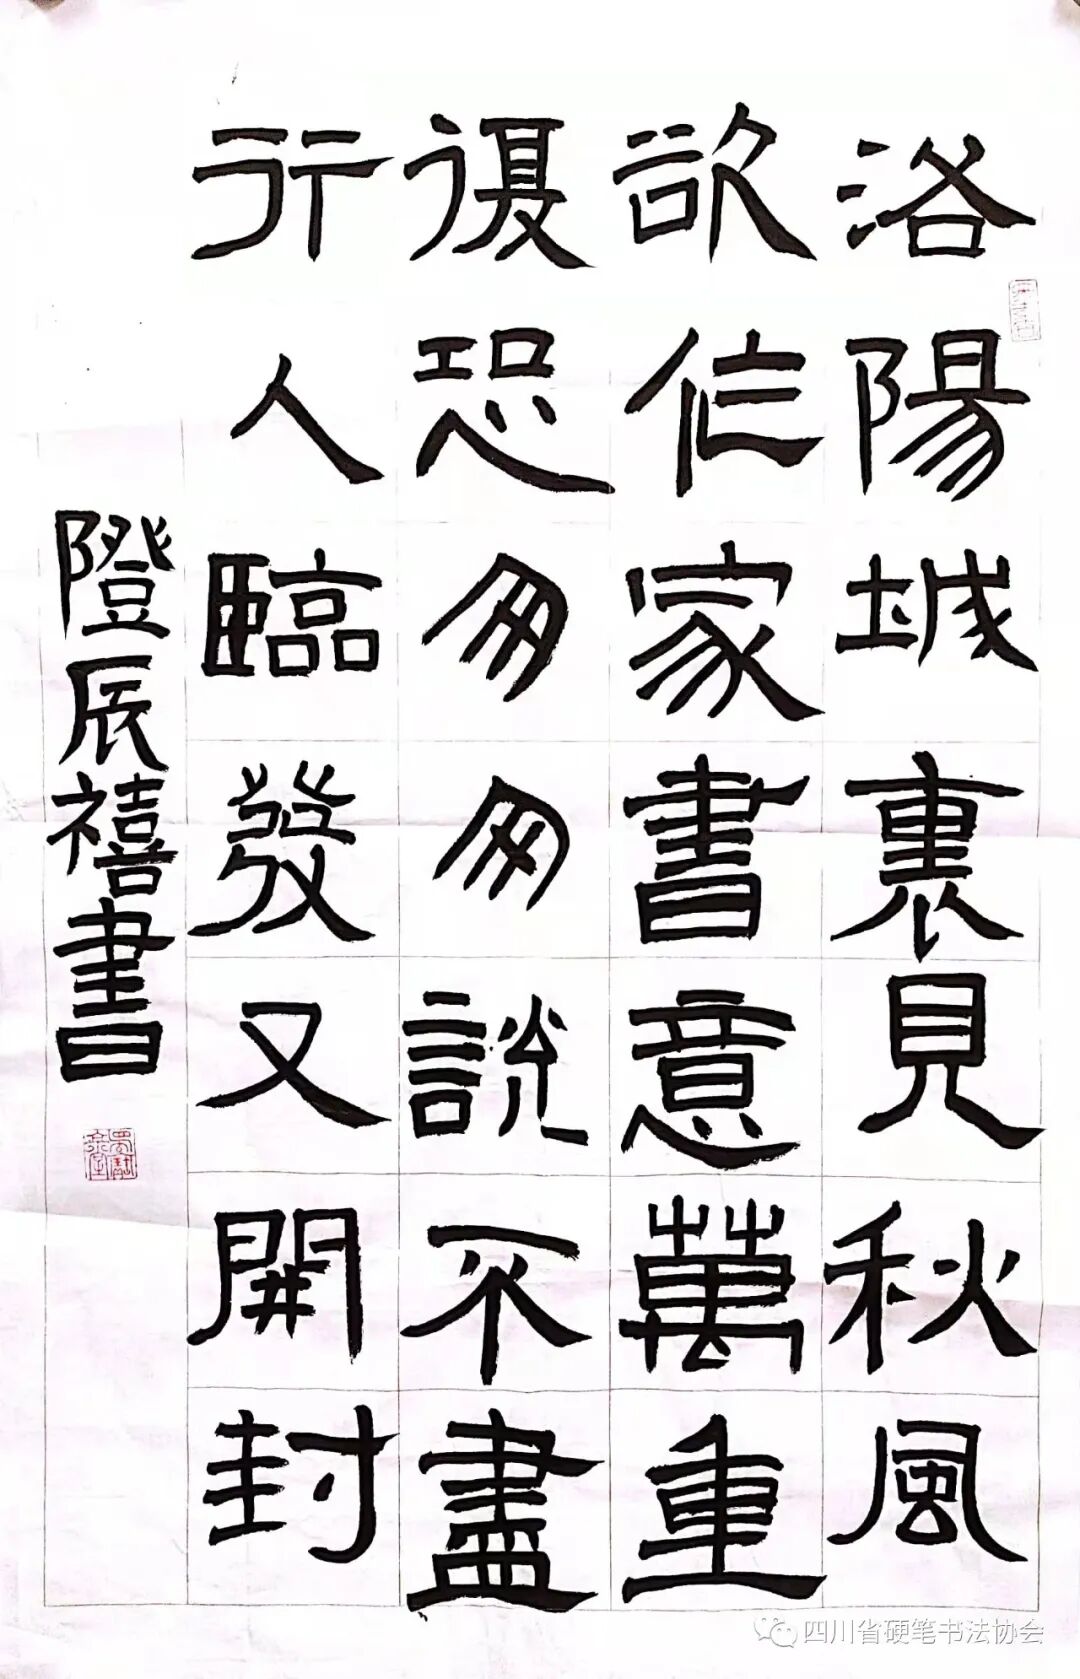 洛陽城裏見秋風
欲作家書意萬重
復恐匆匆説不盡
行人臨發又開封
隥辰禧書
四川省硬笔书法协会